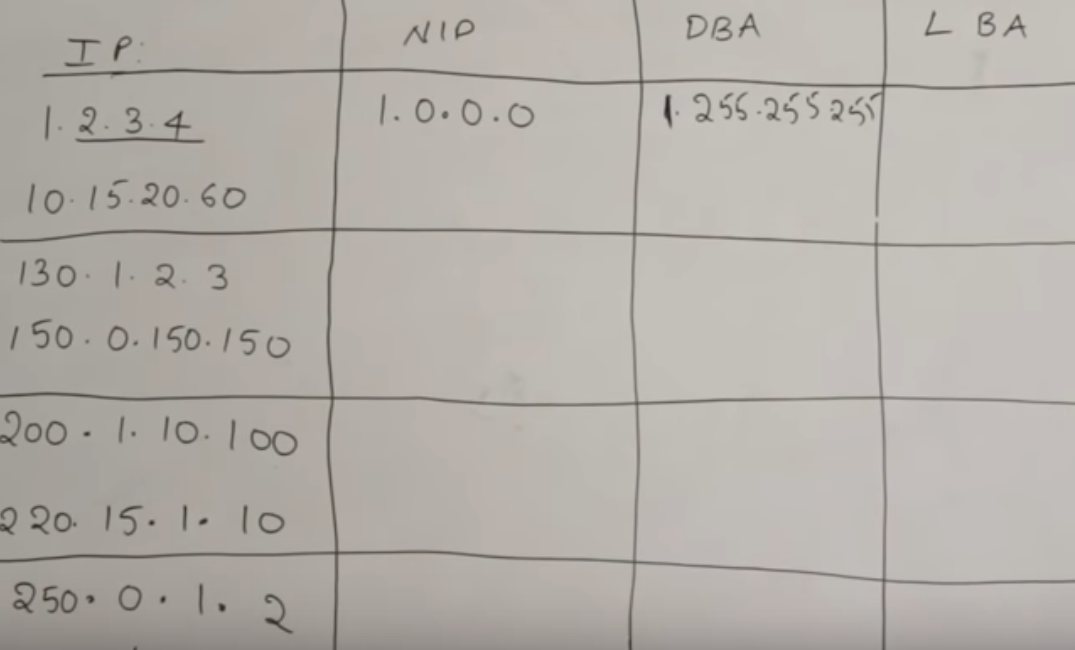 IP: NID DBA L BA
1.2.3.4 1.0.0.0 1.255.255 255
10.15.20.60
130.1.2.3
150.0.150.150
200.1.10.100
220.15.1.10
250.0.1.2